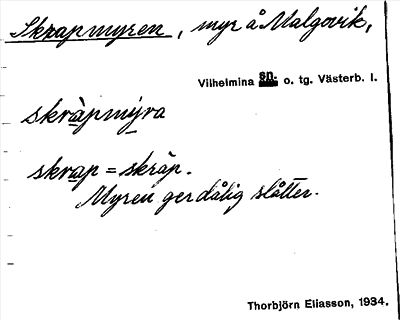 Skrapmyren, myr å Malgovik,
Vilhelmina sn. o. tg. Västerb. l.
skràpmýra
skrap = skräp.
Myren ger dålig slåtter.
Thorbjörn Eliasson, 1934.